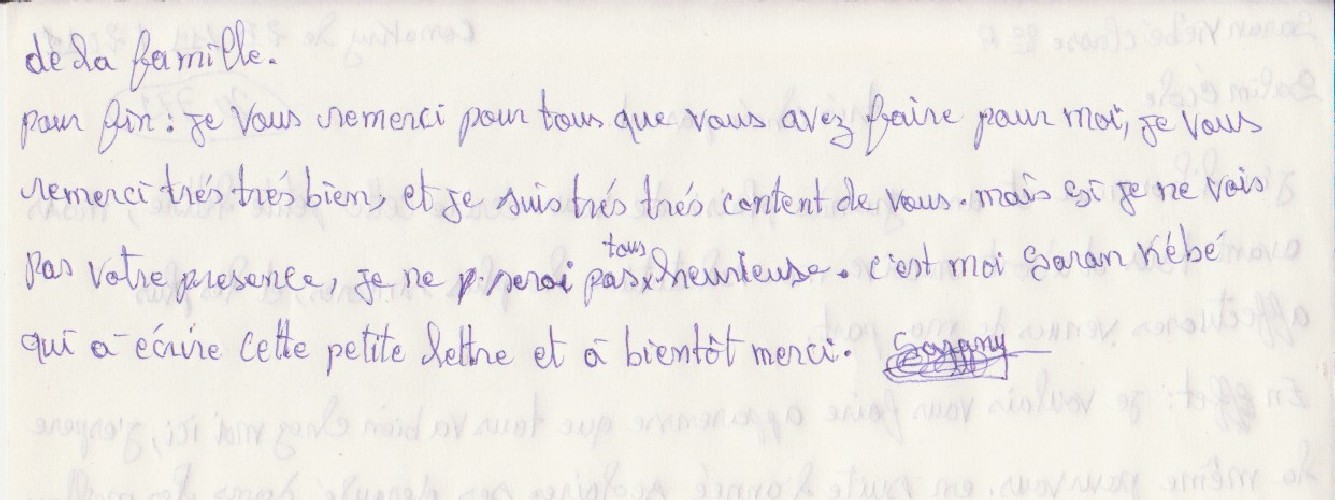 de la famille.
pour fin : je vous remerci pour tous que vous avez faire pour moi, je vous
remerci trés trés bien, et je suis trés trés content de vous. mais si je ne vois
pas votre presence, je ne p. serai pas tous heurieuse. c'est moi Saran Kébé
qui a écrire cette petite lettre et à bientôt merci.